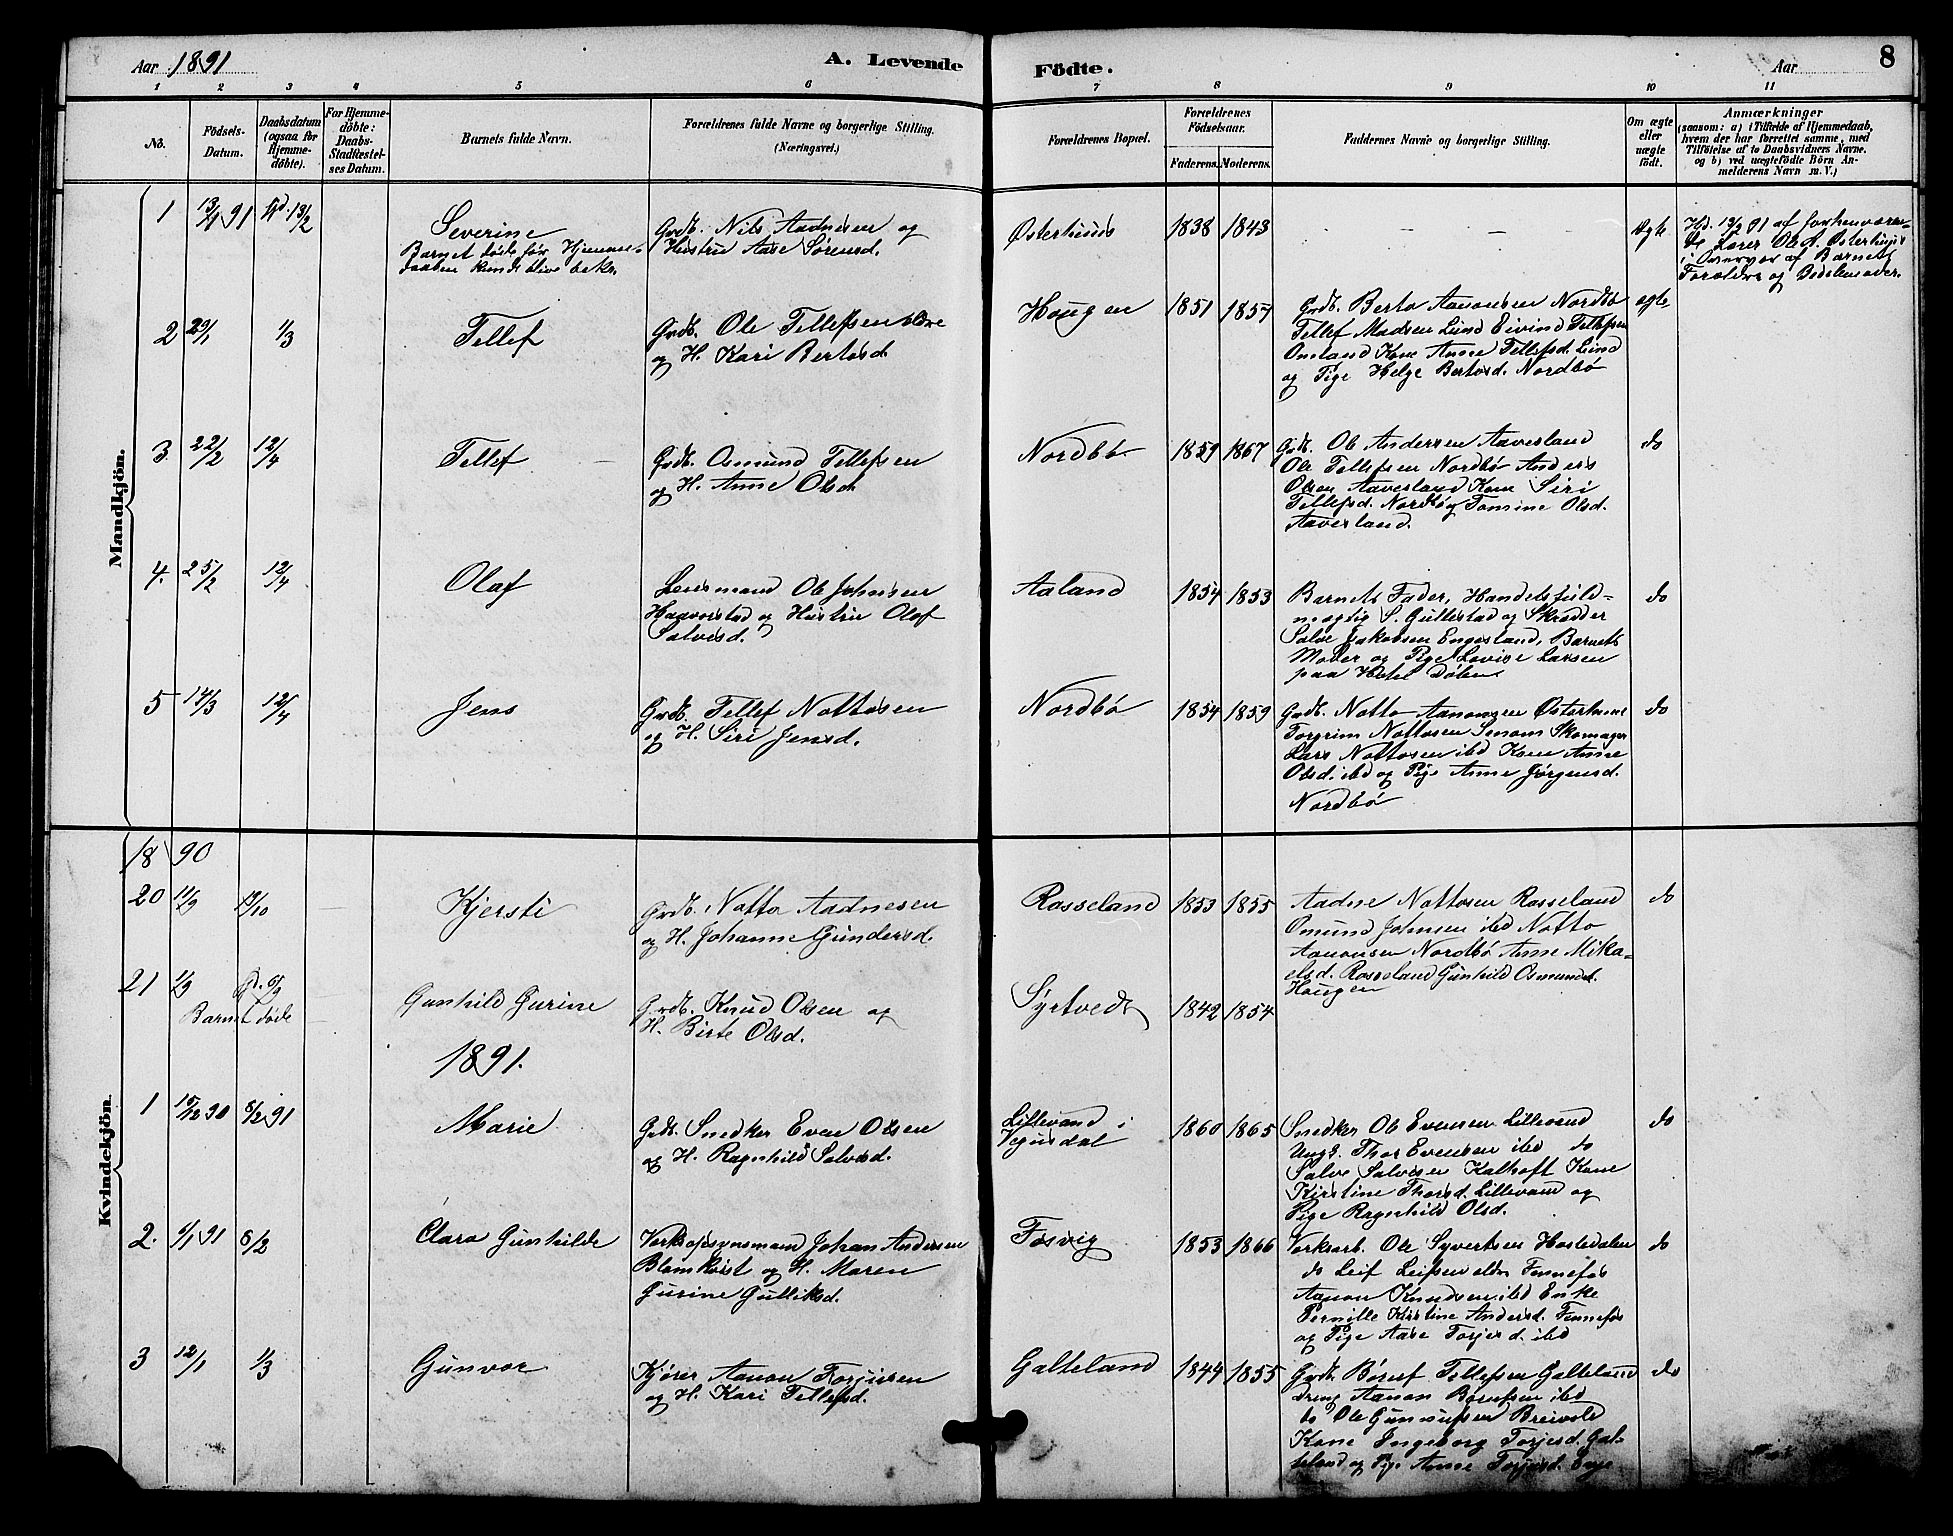 Aar 1891
A. Levende Födte.
Aar
8
1 2 3 4 5 6 7 8 9 10 11
No.
Födsels-
Datum.
Daabsdatum
(ogsaa for
Hjemme-
döbte).
For Hjemme-
döbte:
Daabs-
Stadfæstel-
ses Datum.
Barnets fulde Navn.
Forældrenes fulde Navne og borgerlige Stilling.
(Næringsvei.)
Forældrenes Bopæl.
Forældrenes
Födselsaar.
Faderens. Moderens.
Faddernes Navne og borgerlige Stilling.
Om ægte
eller
uægte
födt.
Anmærkninger
(saasom: a) i Tilfælde af Hjemmedaab,
hvem der har forrettet samme, med
Tilföielse af to Daabsvidners Navne,
og b) ved uægtefödte Börn An-
melderens Navn m. V.)
Mandkjön.
1
13/1 91
13/2
Severine
Barnet døde før Hjemme-
daaben kunde blive bekr.
Grdb. Nils Aadnesen og
Hustru Aase Sørensd.
Østerhuus
1838 1843
– – –
Ægte
Hd. 13/2 91 af forhenværen-
de Lærer Ole Østerhuus
i Overvær af Barnets
Forældre og Bedstemoder.
2
29/1
1/3
Tellef
Grdb. Ole Tellefsen
og H. Kari Bertosd.
Hougen
1851 1857
Grdb. Berto Aanonsen Nordbø
Tellef Madsen Lund Eivind Tellefsen
Omland Kone Anne Tellefsd. Lund
og Pige Helge Bertosd. Nordbø
ægte
3
22/2
12/4
Tellef
Grdb. Osmund Tellefsen
og H. Anne Olsd.
Nordbø
1859 1867
Grdb. Ole Andersen Aavesland
Ole Tellefsen Nordbø Anders
Olsen Aavesland Kone Siri
Tellefsd. Nordbø og Tomine Olsd.
Aavesland.
do
4.
25/2
12/4
Olaf
Lensmand Ole Johnsen
Haaverstad og Hustru Olaf
Salvesd.
Aaland
1854 1853
Barnets Fader, Handelsfuld-
mægtig S. Gullestad og Skrædder
Salve Jakobsen Engesland, Barnets
Moder og Pige Lovise Larsen
paa Hotel Dølen
do
5
14/3
12/4
Jens
Grdb. Tellef Nottosen
og H. Siri Jensd.
Nordbø
1854 1859
Grdb. Notto Aanonsen Østerhuus
Torgrim Nottosen Skomager
Lars Nottosen ibd Kone Anne
Olsd. ibd og Pige Anne Jørgensd.
Nordbø
do
Kvindekjön.
1890
20
11/9
19/10
Kjersti
Grdb. Notto Aadnesen
og H. Johanne Gundersd.
Rosseland
1853 1855
Aadne Nottosen Rosseland
Omund Johnsen ibd Notto
Aanonsen Nordbø Anne Mika-
elsd. Rosseland Gunhild Osmundsd.
Hougen
do
21
1/9
Barnet døde
Gunhild Gurine
Grdb. Knud Olsen og
H. Birte Olsd.
Syrtvedt
1842 1854
1891.
1
15/12 90
8/2 91
Marie
Grdb. Snedker Even Olsen
og H. Ragnhild Salvesd.
Lillevand i
Vegusdal
1860 1865
Snedker Ole Evensen Lillevand
Ungk. Thor Evensen ibd do
Salve Salvesen Kalhoft Kone
Kirstine Thorsd. Lillevand og
Pige Ragnhild Olsd.
do
2.
6/1 91
8/2
Clara Gunhilde
Verksopsynsmand Johan Andersen
Blomkvist og H. Maren
Gurine Gulliksd.
Føsvig
1853 1866
Verksarb. Ole Syvertsen Hodedalen
do Leif Leifsen Fennefos
Aanon Knudsen ibd Enke
Pernille Kirstine Andersd. Fennefos
og Pige Aase Torjersd. ibd
do
3
12/1
1/3
Gunvor
Kjører Aanon Torjussen
og H. Kari Tellefsd.
Galteland
1844 1855
Grdb. Børuf Tellefsen Galteland
dreng Aanon Børufsen ibd
do Ole Gunnufsen Breivold
Kone Ingeborg Torjesd. Gal-
teland og Pige Anne Torjesd.
do